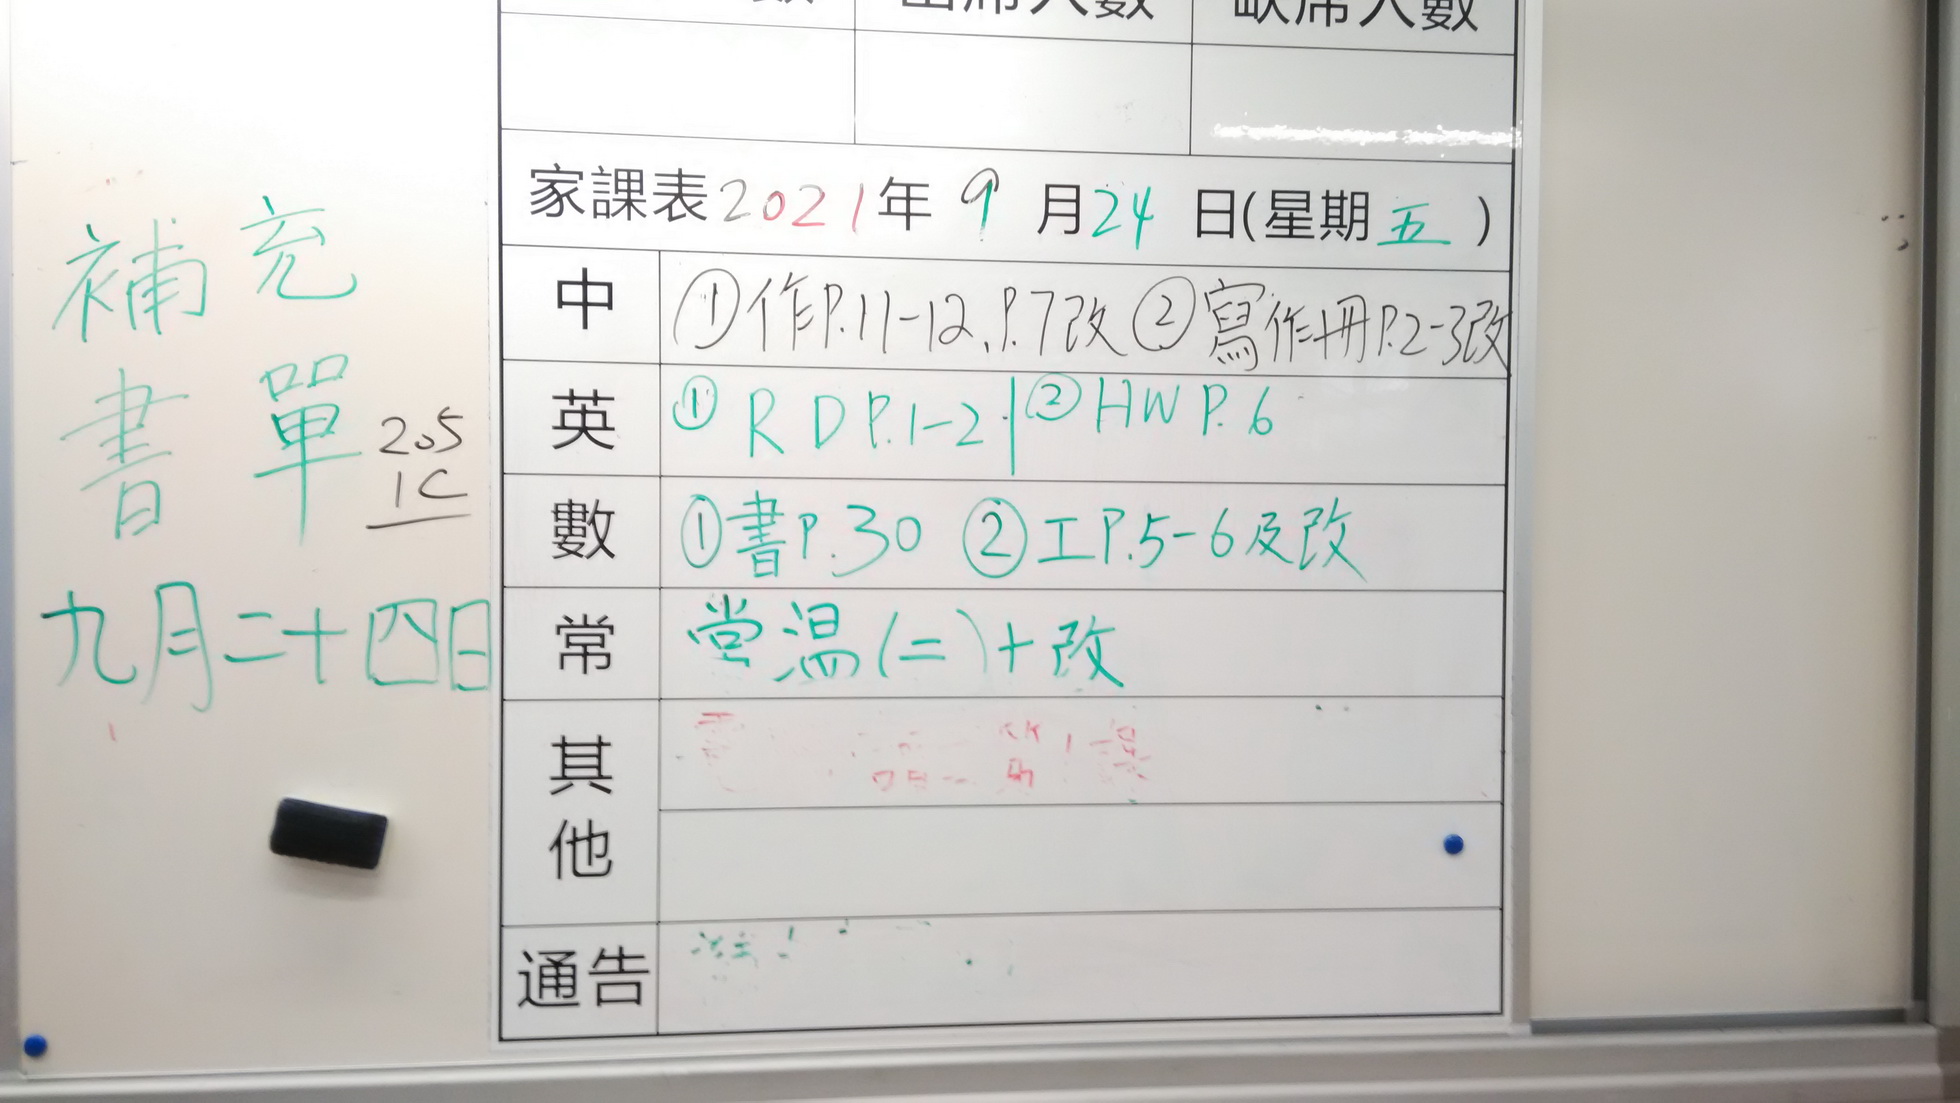 出席人數 缺席人數
家課表2021年 9 月24 日(星期五)
中 ①作P.11-12、P.7改 ②寫作冊P.2-3改
英 ① RD P.1-2 | ② HW P.6
數 ①書P.30 ②工P.5-6及改
常 常溫(二)+改
其他
通告
補充
書單
205
1C
九月二十四日